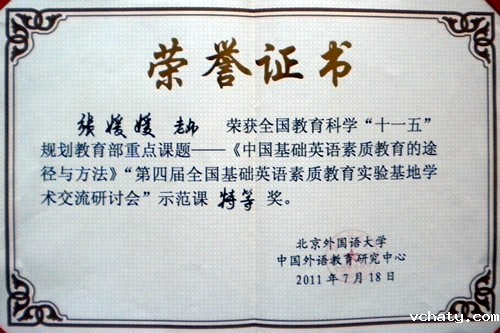 荣誉证书
张媛媛 老师 荣获全国教育科学“十一五”
规划教育部重点课题——《中国基础英语素质教育的途
径与方法》“第四届全国基础英语素质教育实验基地学
术交流研讨会”示范课 特等 奖。
北京外国语大学
中国外语教育研究中心
2011年7月18日
vchaty.com